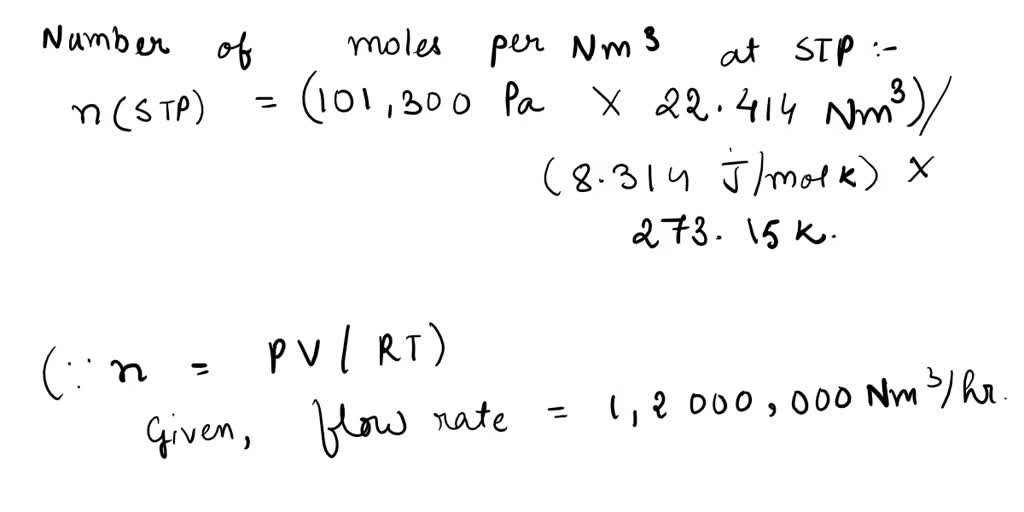 Number of moles per Nm³ at STP :-
n(STP) = (101,300 Pa × 22.414 Nm³)/
(8.314 J/mol K) ×
273.15 K.
(∵ n = PV / RT)
Given, flow rate = 1,2 000,000 Nm³/hr.